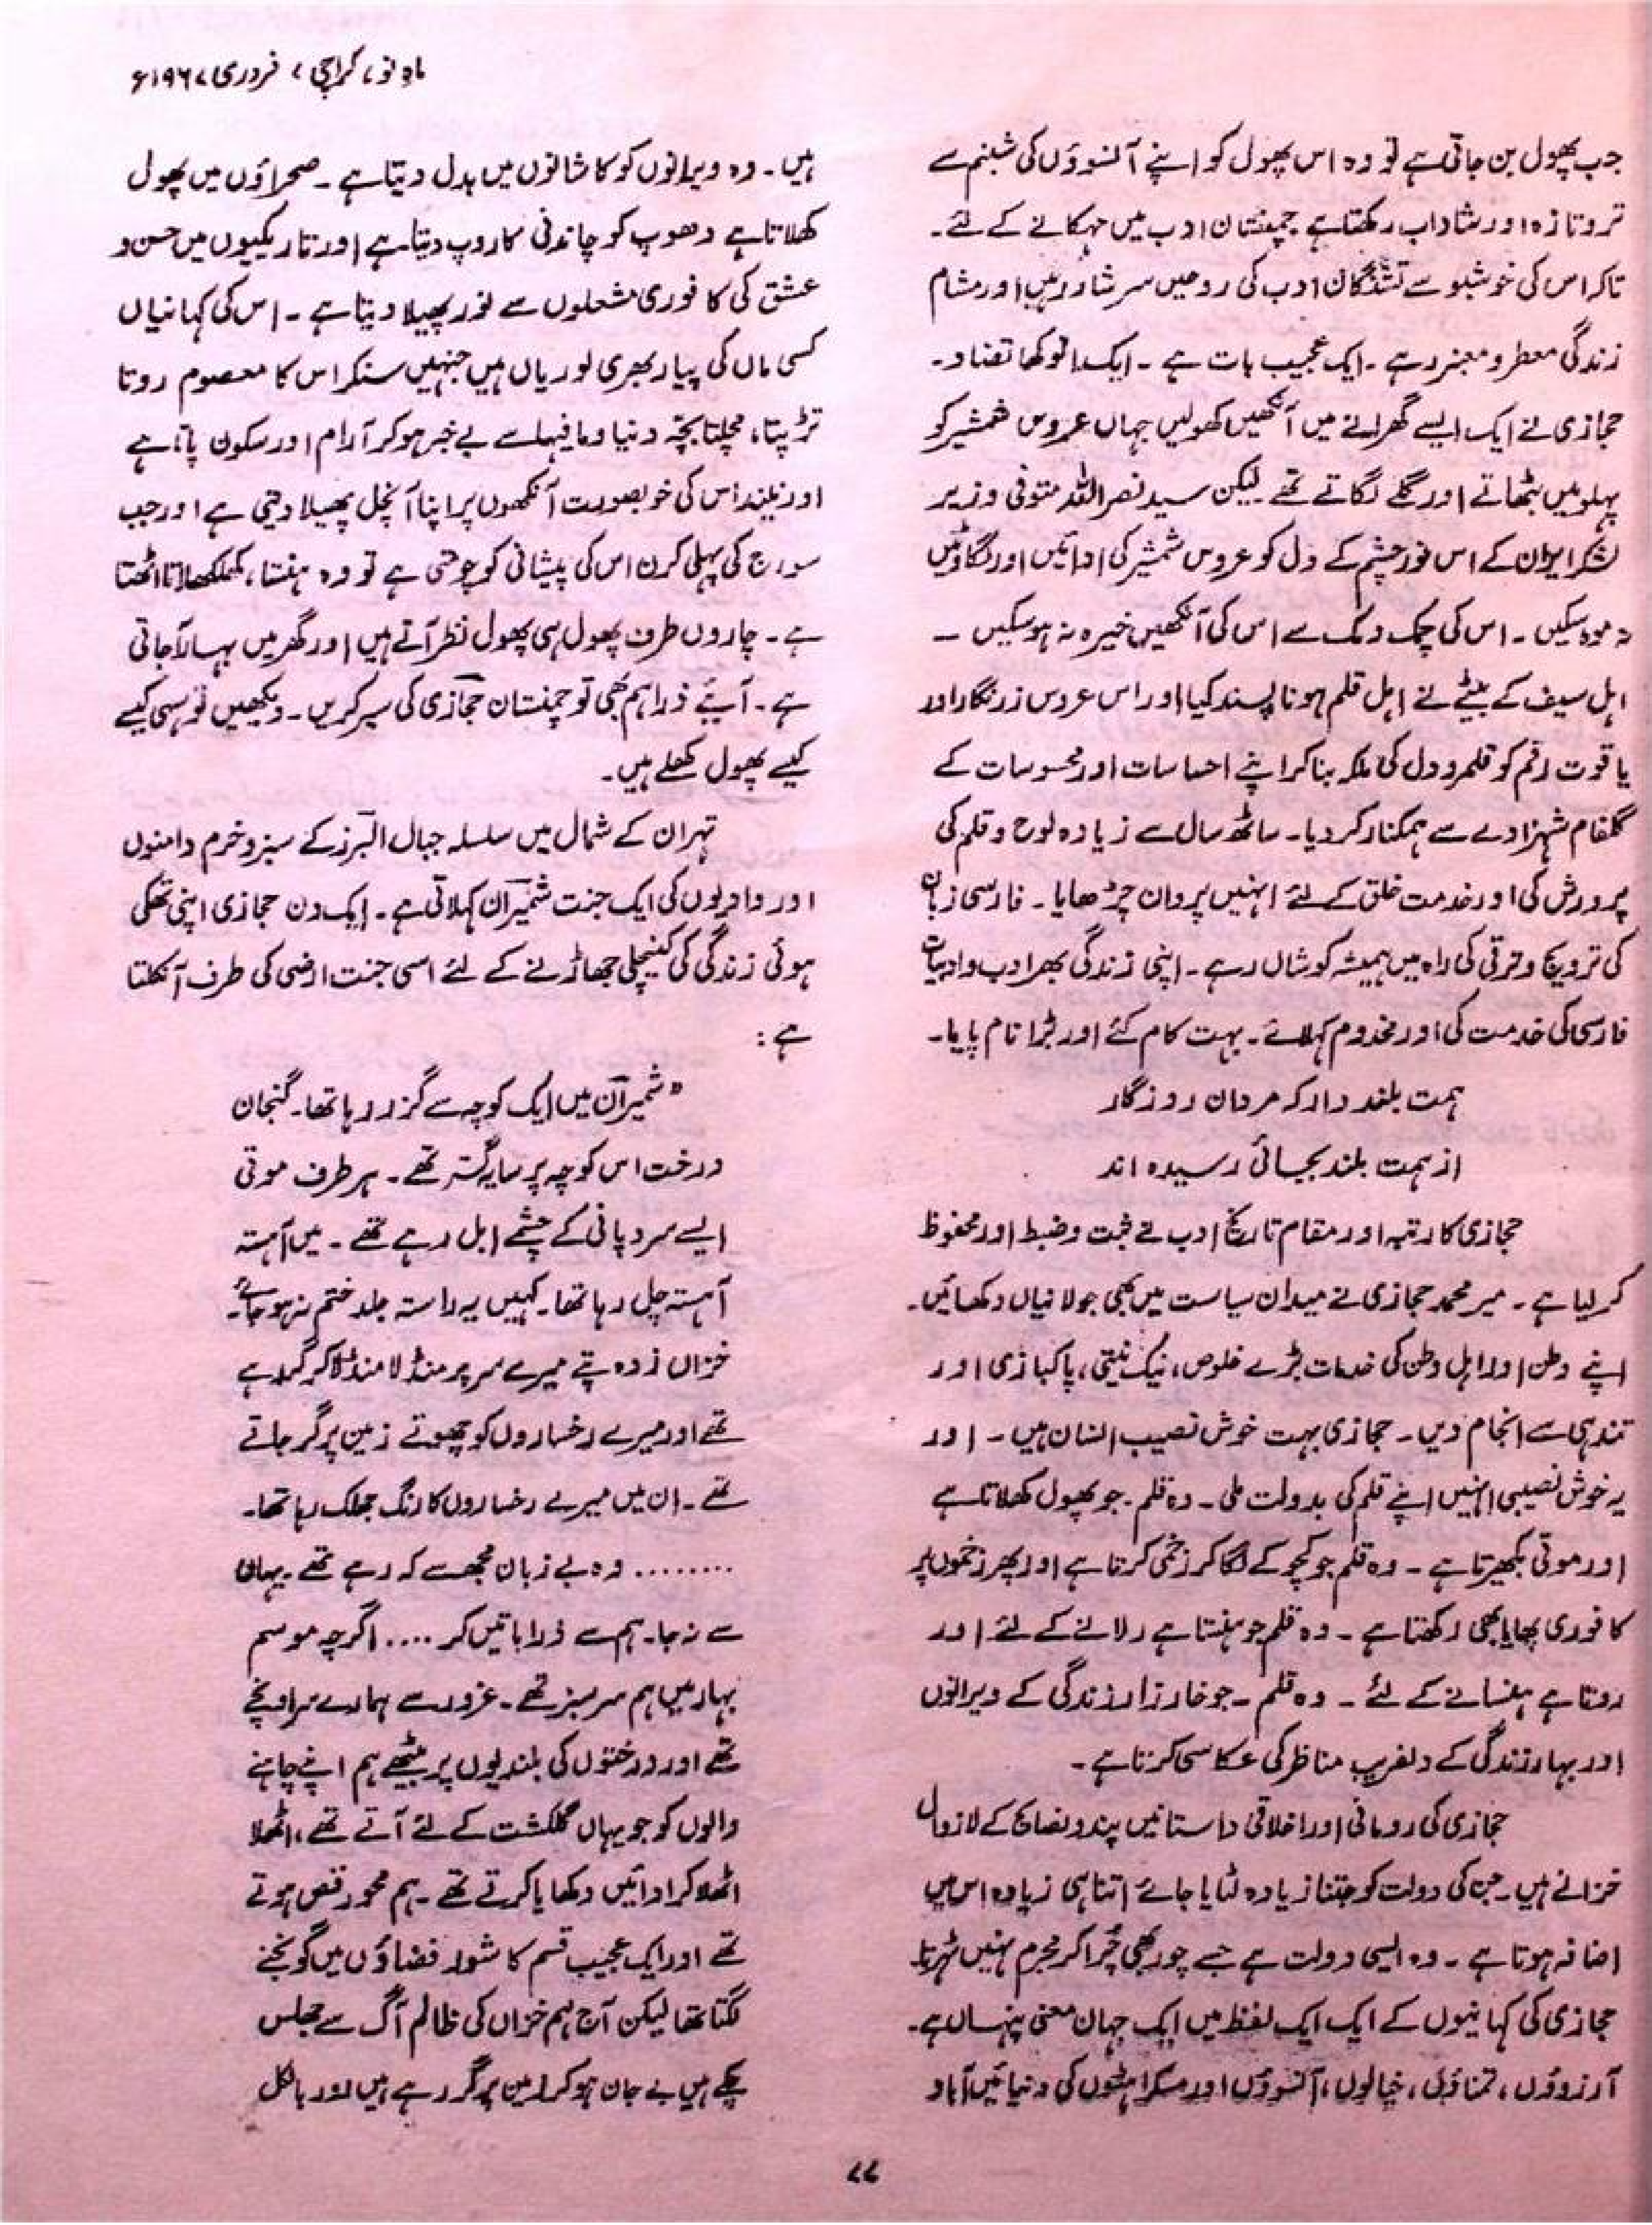 ماہِ نو، کراچی، فروری ۱۹۶۷ء
جب پھول بن جاتی ہے تو وہ اس پھول کو اپنے آنسوؤں کی شبنم سے
تروتازہ اور شاداب رکھتا ہے چمنستان ادب میں مہکانے کے لئے۔
تاکہ اس کی خوشبو سے تشنگان ادب کی روحیں سرشار رہیں اور مشام
زندگی معطر و معنبر رہے۔ ایک عجیب بات ہے۔ ایک انوکھا تضاد۔
حجازی نے ایک ایسے گھرانے میں آنکھیں کھولیں جہاں عروس شمشیر کو
پہلو میں بٹھاتے اور گلے لگاتے تھے لیکن سید نصراللہ متوفی وزیر
لشکر ایران کے اس نور چشم کے دل کو عروس شمشیر کی ادائیں اور لگاوٹیں
نہ موہ سکیں۔ اس کی چمک دمک سے اس کی آنکھیں خیرہ نہ ہو سکیں ــ
اہل سیف کے بیٹے نے اہل قلم ہونا پسند کیا اور اس عروس زرنگار اور
یاقوت رقم کو قلمرو دل کی ملکہ بنا کر اپنے احساسات اور محسوسات کے
گلفام شہزادے سے ہمکنار کر دیا۔ ساٹھ سال سے زیادہ لوح و قلم کی
پرورش کی اور خدمت خلق کے لئے انہیں پروان چڑھایا۔ فارسی زبان
کی ترویج و ترقی کی راہ میں ہمیشہ کوشاں رہے۔ اپنی زندگی بھر ادب و ادبیات
فارسی کی خدمت کی اور مخدوم کہلائے۔ بہت کام کئے اور بڑا نام پایا۔
ہمت بلند دار کہ مردان روزگار
از ہمت بلند بجائی رسیدہ اند
حجازی کا رتبہ اور مقام تاریخ ادب نے ثبت و ضبط اور محفوظ
کر لیا ہے۔ میر محمد حجازی نے میدان سیاست میں بھی جولانیاں دکھائیں۔
اپنے وطن اور اہل وطن کی خدمات بڑے خلوص، نیک نیتی، پاکبازی اور
تندہی سے انجام دیں۔ حجازی بہت خوش نصیب انسان ہیں۔ اور
یہ خوش نصیبی انہیں اپنے قلم کی بدولت ملی۔ وہ قلم۔ جو پھول کھلاتا ہے
اور موتی بکھیرتا ہے۔ وہ قلم جو کچوکے لگا کر زخمی کرتا ہے اور پھر زخموں پر
کافوری پھایا بھی رکھتا ہے۔ وہ قلم جو ہنستا ہے رلانے کے لئے اور
روتا ہے ہنسانے کے لئے۔ وہ قلم۔ جو خارزار زندگی کے ویرانوں
اور بہار زندگی کے دلفریب مناظر کی عکاسی کرتا ہے۔
حجازی کی رومانی اور اخلاقی داستانیں پند و نصائح کے لازوال
خزانے ہیں۔ جن کی دولت کو جتنا زیادہ لٹایا جائے اتنا ہی زیادہ اس میں
اضافہ ہوتا ہے۔ وہ ایسی دولت ہے جسے چور بھی چُرا کر مجرم نہیں ٹہرتا۔
حجازی کی کہانیوں کے ایک ایک لفظ میں ایک جہان معنی پنہاں ہے۔
آرزوؤں، تمناؤں، خیالوں، آنسوؤں اور مسکراہٹوں کی دنیائیں آباد
ہیں۔ وہ ویرانوں کو کاشانوں میں بدل دیتا ہے۔ صحراؤں میں پھول
کھلاتا ہے دھوپ کو چاندنی کا روپ دیتا ہے اور تاریکیوں میں حسن و
عشق کی کافوری مشعلوں سے نور پھیلا دیتا ہے۔ اس کی کہانیاں
کسی ماں کی پیار بھری لوریاں ہیں جنہیں سنکر اس کا معصوم روتا
تڑپتا، مچلتا بچّہ دنیا و مافیہا سے بے خبر ہو کر آرام اور سکون پاتا ہے
اور نیند اس کی خوبصورت آنکھوں پر اپنا آنچل پھیلا دیتی ہے اور جب
سورج کی پہلی کرن اس کی پیشانی کو چومتی ہے تو وہ ہنستا، کھلکھلاتا اٹھتا
ہے۔ چاروں طرف پھول ہی پھول نظر آتے ہیں اور گھر میں بہار آ جاتی
ہے۔ آیئے ذرا ہم بھی تو چمنستان حجازی کی سیر کریں۔ دیکھیں تو سہی کیسے
کیسے پھول کھلے ہیں۔
تہران کے شمال میں سلسلہ جبال البرز کے سبز و خرم دامنوں
اور وادیوں کی ایک جنت شمیران کہلاتی ہے۔ ایک دن حجازی اپنی تھکی
ہوئی زندگی کی کینچلی جھاڑنے کے لئے اسی جنت ارضی کی طرف آ نکلتا
ہے:
"شمیران میں ایک کوچہ سے گزر رہا تھا۔ گنجان
درخت اس کوچہ پر سایہ گستر تھے۔ ہر طرف موتی
ایسے سرد پانی کے چشمے ابل رہے تھے۔ میں آہستہ
آہستہ چل رہا تھا۔ کہیں یہ راستہ جلد ختم نہ ہو جائے۔
خزاں زدہ پتے میرے سر پر منڈلا منڈلا کر گر رہے
تھے اور میرے رخساروں کو چھوتے زمین پر گر جاتے
تھے۔ ان میں میرے رخساروں کا رنگ جھلک رہا تھا۔
......... وہ بے زبان مجھ سے کہ رہے تھے۔ یہاں
سے نہ جا۔ ہم سے ذرا باتیں کر .... اگرچہ موسم
بہار میں ہم سرسبز تھے۔ غرور سے ہمارے سر اونچے
تھے اور درختوں کی بلندیوں پر بیٹھے ہم اپنے چاہنے
والوں کو جو یہاں گلگشت کے لئے آتے تھے، اٹھلا
اٹھلا کر ادائیں دکھایا کرتے تھے۔ ہم محو رقص ہوتے
تھے اور ایک عجیب قسم کا شور فضاؤں میں گونجنے
لگتا تھا لیکن آج ہم خزاں کی ظالم آگ سے جھلس
چکے ہیں بے جان ہو کر زمین پر گر رہے ہیں اور بالکل
۷۷